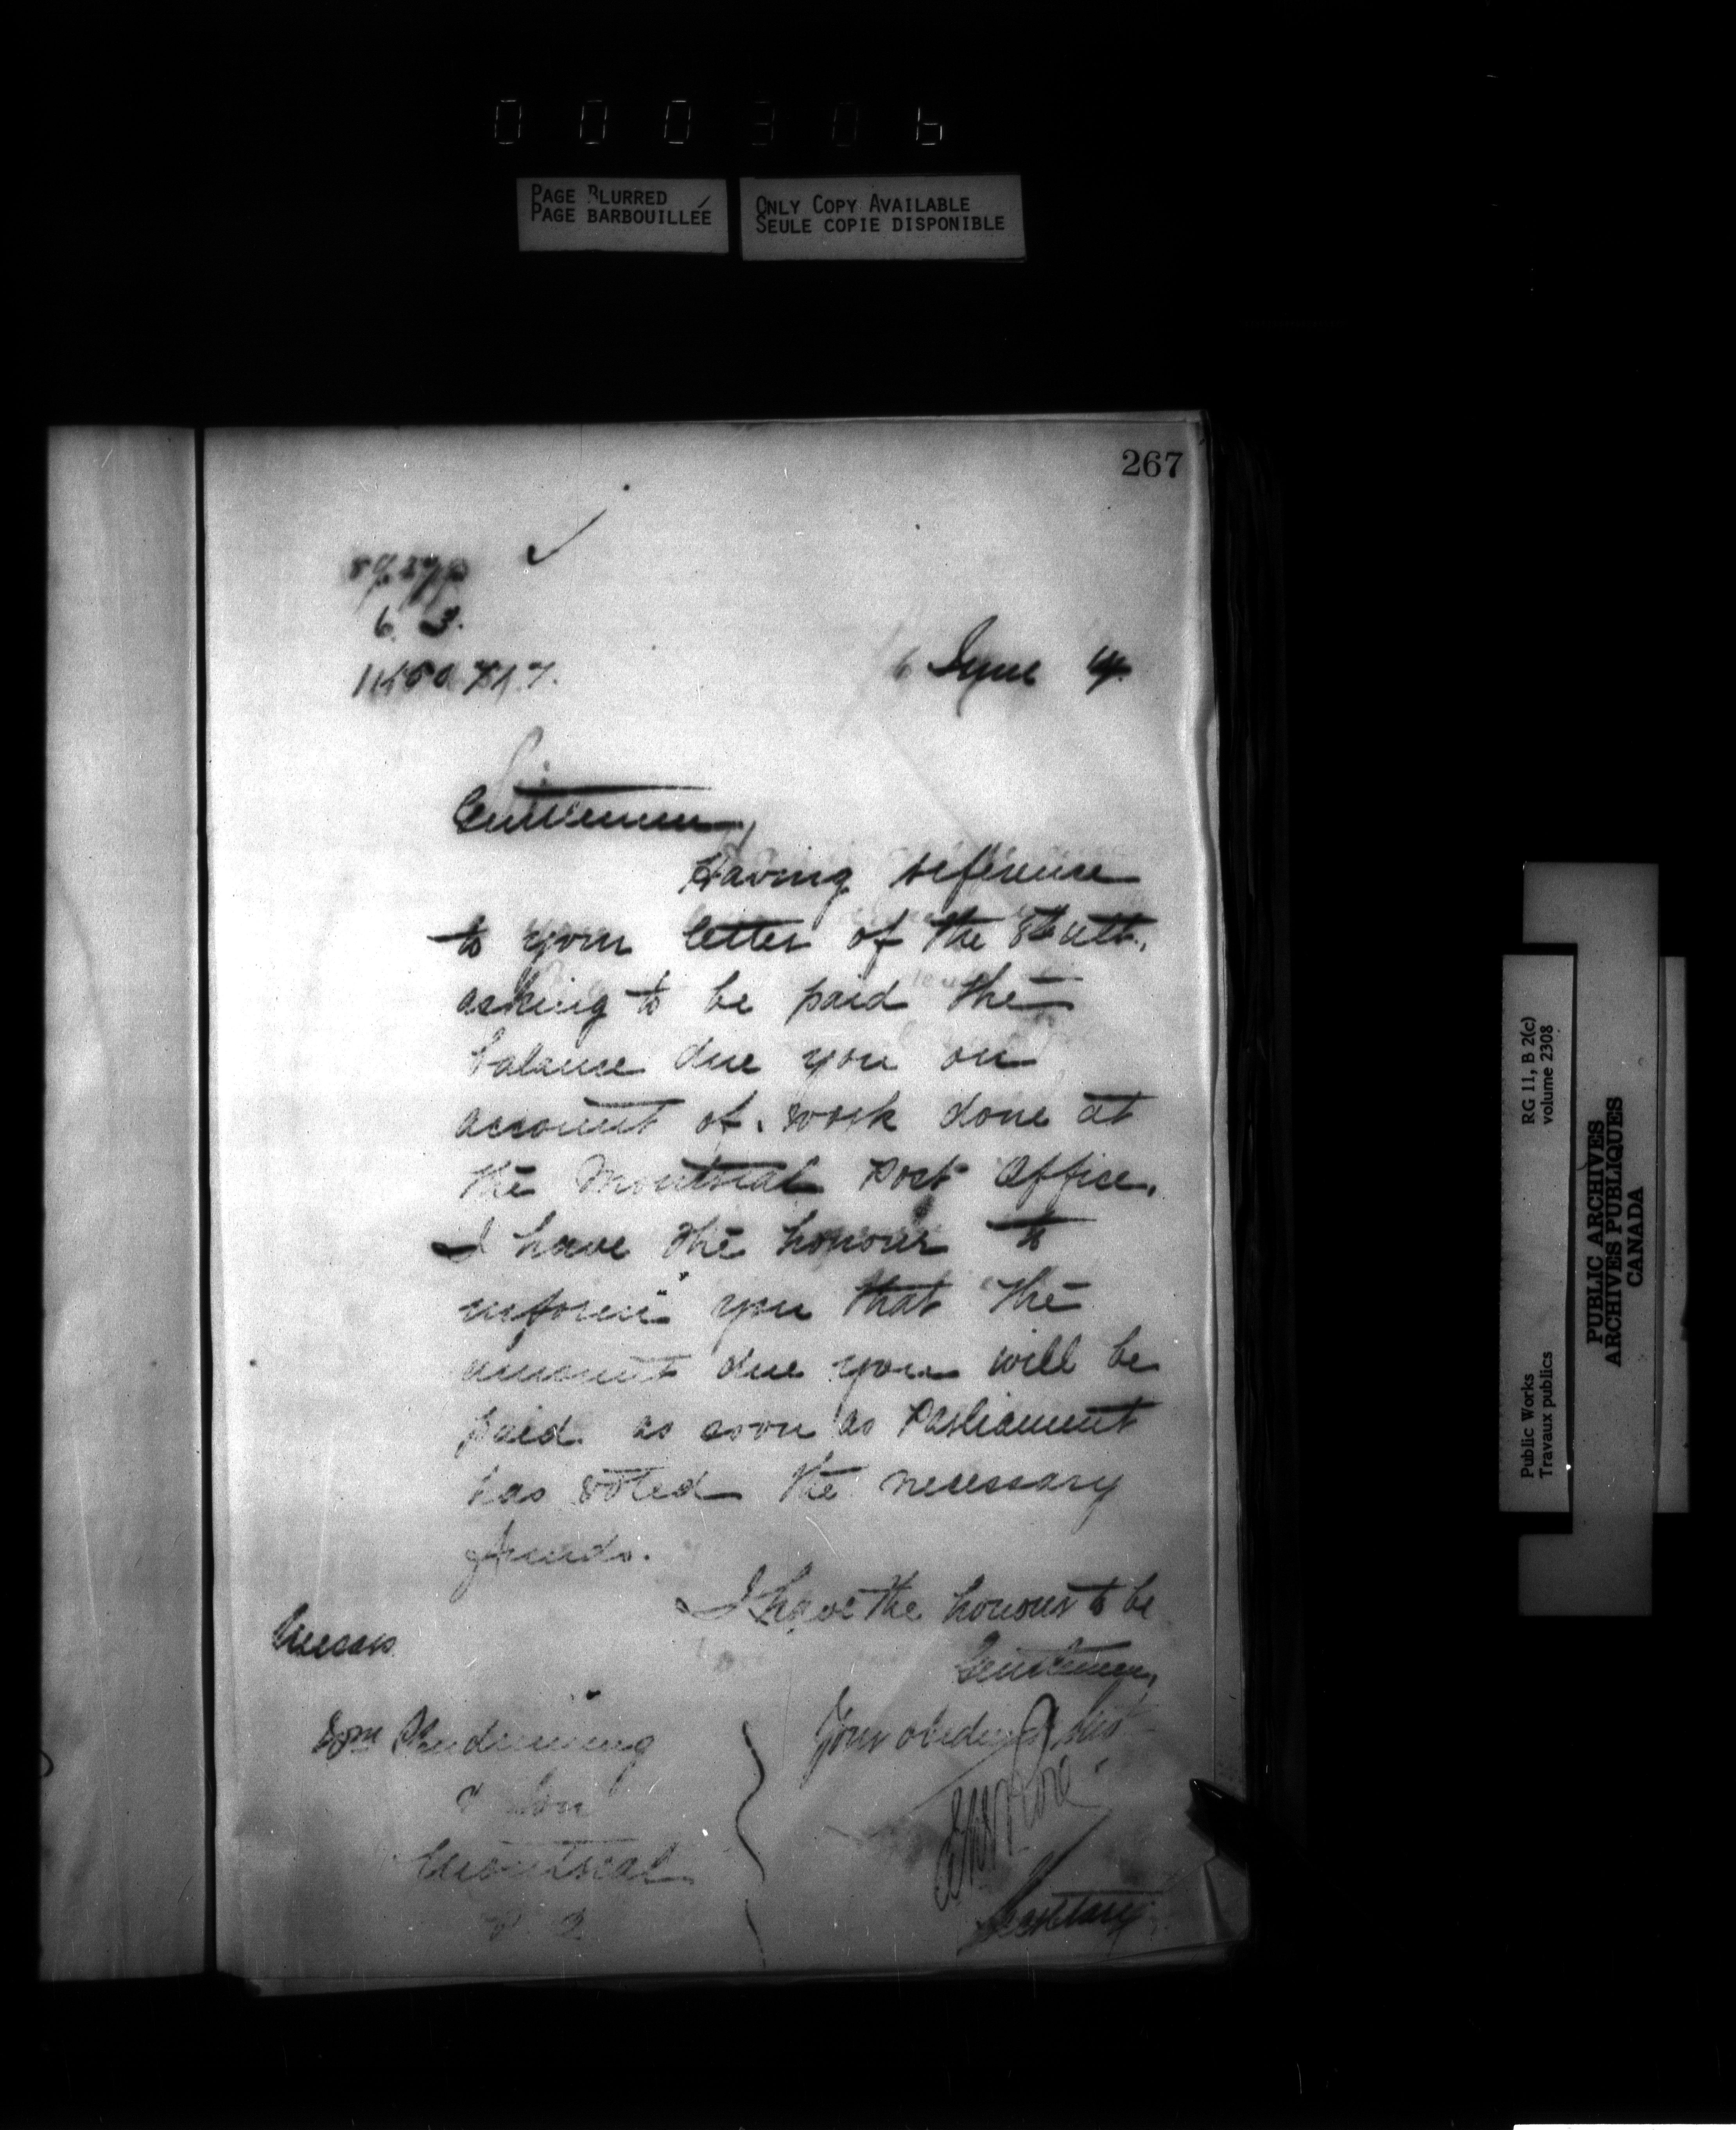 000306
PAGE BLURRED
PAGE BARBOUILLÉE
ONLY COPY AVAILABLE
SEULE COPIE DISPONIBLE
267
6 3.
6 June
Gentlemen,
Having reference
to your letter of the 8th ult.,
asking to be paid the
balance due you on
account of work done at
the Montreal Post Office,
I have the honour to
inform you that the
amount due you will be
paid as soon as Parliament
has voted the necessary
funds.
I have the honour to be
Gentlemen,
Your obedient Servt
Secretary
Messrs.
Wm Clendinneng
& Son
Montreal
P. Q.
RG 11, B 2(c)
volume 2308
Public Works
Travaux publics
PUBLIC ARCHIVES
ARCHIVES PUBLIQUES
CANADA